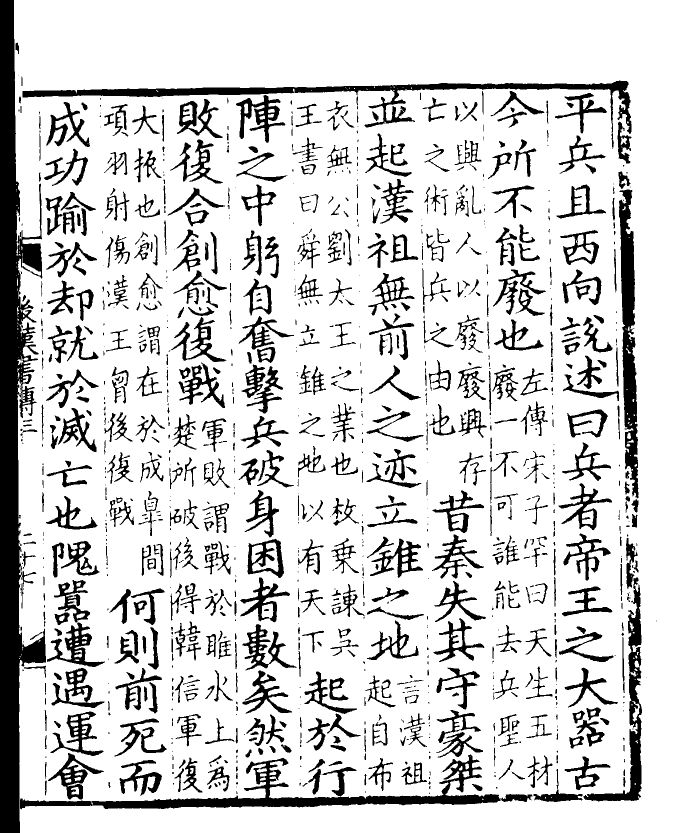 平兵且西向說述曰兵者帝王之大器古
今所不能廢也
左傳宋子罕曰天生五材
廢一不可誰能去兵聖人
以興亂人以廢廢興存
亡之術皆兵之由也
昔秦失其守豪桀
並起漢祖無前人之迹立錐之地
言漢祖
起自布
衣無公劉太王之業也枚乗諫吳
王書曰舜無立錐之地以有天下
起於行
陣之中躬自奮擊兵破身困者數矣然軍
敗復合創愈復戰
軍敗謂戰於睢水上爲
楚所破後得韓信軍復
大振也創愈謂在於成臯間
項羽射傷漢王胷後復戰
何則前死而
成功踰於却就於滅亡也隗囂遭遇運會
後漢書傳三
二十七